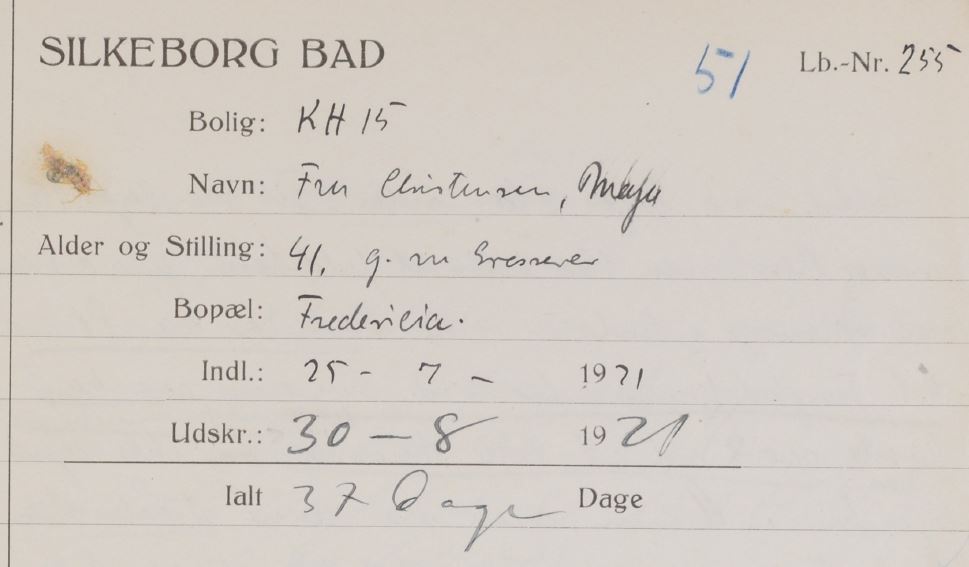 SILKEBORG BAD 51 Lb.-Nr. 255
Bolig: KH 15
Navn: Fru Christensen, Maja
Alder og Stilling: 41. g. m
Bopæl: Fredericia.
Indl.: 25 - 7 - 1921
Udskr.: 30 - 8 1921
Ialt 37 Dage Dage